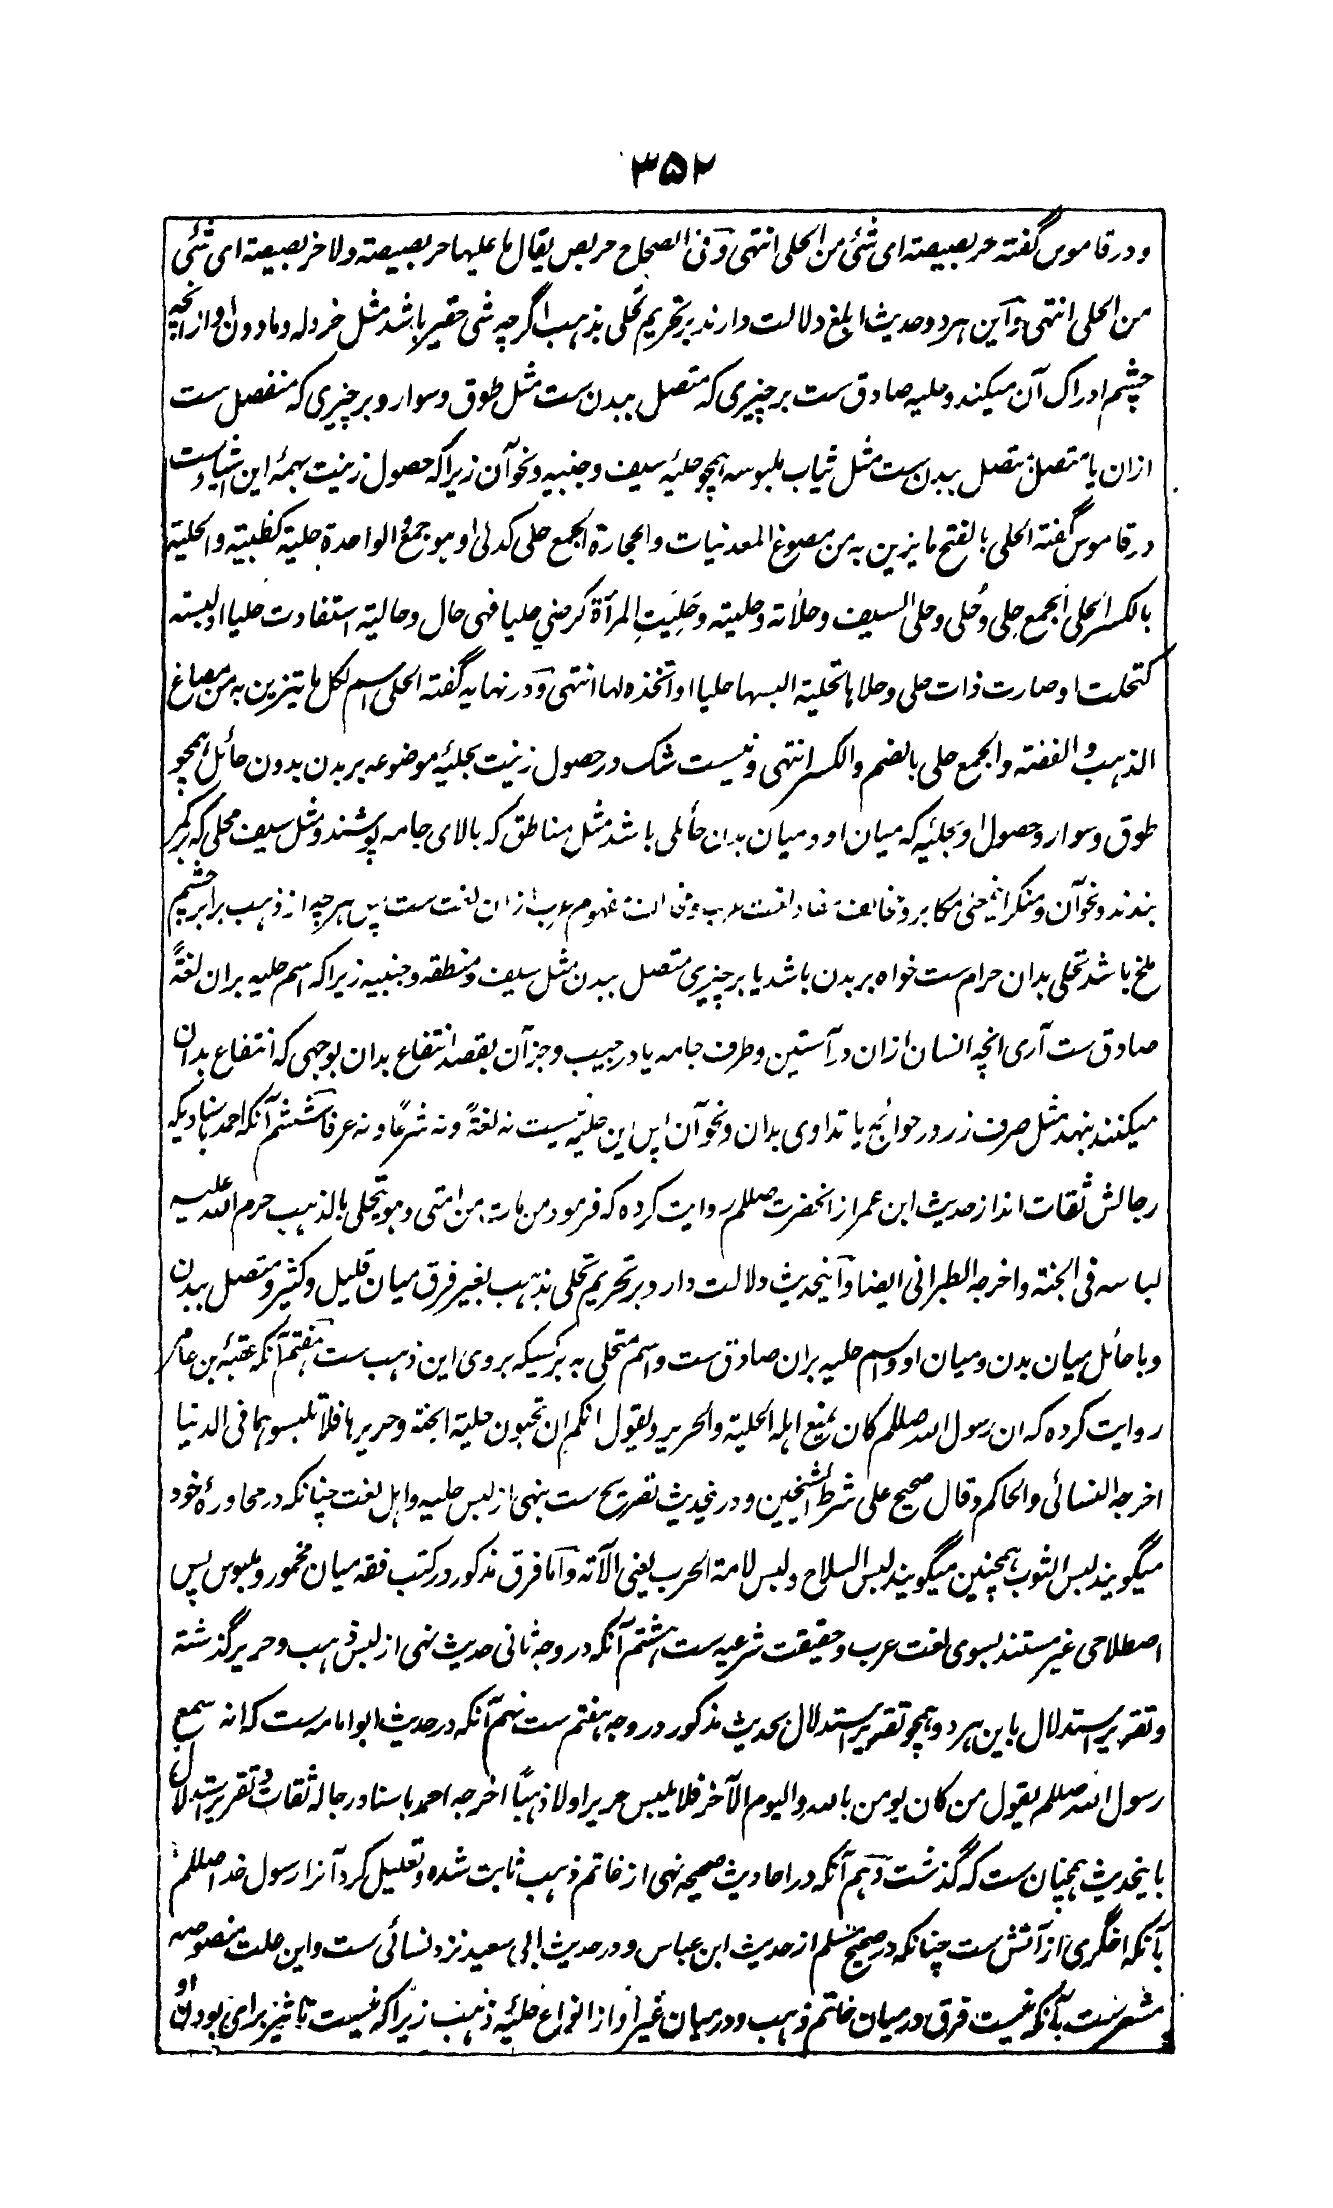 ۳۵۲
ودر قاموس گفته حربصیصة ای شئی من الحلی انتهی وفی الصحاح حربص یقال ما علیها حربصیصة ولا خربصیصة ای شئی
من الحلی انتهی واین هردو حدیث ابلغ دلالت دارند بر تحریم تحلی بذهب اگرچه شی حقیر باشد مثل خردله ومادون او از انچه
چشم ادراک آن میکند وحلیه صادق ست بر چیزی که متصل ببدن ست مثل طوق وسوار وبر چیزی که منفصل ست
ازان یا متصل متصل ببدن ست مثل ثیاب ملبوسه همچو حلیۀ سیف وجنبیه ونحو آن زیراکه حصول زینت بهمۀ این اشیاست و
در قاموس گفته الحلی بالفتح ما یزین به من مصوغ المعدنیات والحجارة الجمع حلی کدلی او هو جمع والواحدة حلیة کظبیة والحلیة
بالکسر الحلی الجمع حِلی وحُلی وحلی السیف وحلأته وحلیته وحَلِیَتِ المرأة کرضی حلیا فهی حال وحالیة استفادت حلیا اولبسته
کتحلت او صارت ذات حلی وحلاها تحلیة البسها حلیا او اتخذه لها انتهی ودر نهایه گفته الحلی اسم لکل ما یتزین به من مصاغ
الذهب والفضة والجمع حلی بالضم والکسر انتهی ونیست شک در حصول زینت بحلیۀ موضوعه بر بدن بدون حائل همچو
طوق وسوار وحصول او بحلیۀ که میان او ومیان بدن حائلی باشد مثل مناطق که بالای جامه پوشند ومثل سیف محلی که بر کمر
بندند ونحو آن ومنکر اینمعنی مکابر ومخالف مفاد لغت عرب ومخالف مفهوم عرب ازان لغت ست پس هرچه از ذهب برابر چشم
ملخ باشد تحلی بدان حرام ست خواه بر بدن باشد یا بر چیزی متصل ببدن مثل سیف ومنطقه وجنبیه زیراکه اسم حلیه بران لغةً
صادق ست آری انچه انسان ازان در آستین وطرف جامه یا در جیب وجز آن بقصد انتفاع بدان بوجهی که انتفاع بدان
میکنند بنهد مثل صرف زر در حوائج یا تداوی بدان ونحو آن پس این حلیه نیست نه لغةً ونه شرعًا ونه عرفا ششم آنکه احمد باسنادیکه
رجالش ثقات اند از حدیث ابن عمر از انحضرت صللم روایت کرده که فرمود من مات من امتی وهو یتحلی بالذهب حرم الله علیه
لباسه فی الجنة واخرجه الطبرانی ایضا واینحدیث دلالت دارد بر تحریم تحلی بذهب بغیر فرق میان قلیل وکثیر ومتصل ببدن
وبا حائل میان بدن ومیان او واسم حلیه بران صادق ست واسم متحلی به برکسیکه بروی این ذهب ست هفتم آنکه عقبۀ بن عامر
روایت کرده که ان رسول الله صللم کان یمنع اهله الحلیة والحریر ویقول انکم ان تحبون حلیة الجنة وحریرها فلا تلبسوهما فی الدنیا
اخرجه النسائی والحاکم وقال صحیح علی شرط الشیخین ودرینحدیث تصریح ست بنهی از لبس حلیه واهل لغت چنانکه در محاورۀ خود
میگویند لبس الثوب همچنین میگویند لبس السلاح ولبس لامة الحرب یعنی الآته واما فرق مذکور در کتب فقه میان مخمور وملبوس پس
اصطلاحی غیر مستند بسوی لغت عرب وحقیقت شرعیه ست هشتم آنکه در وجه ثانی حدیث نهی از لبس ذهب وحریر گذشته
وتقریر استدلال باین هردو همچو تقریر استدلال بحدیث مذکور در وجه هفتم ست نهم آنکه در حدیث ابوامامه ست که انه سمع
رسول الله صللم یقول من کان یومن بالله والیوم الآخر فلا یلبس حریرا ولا ذهبًا اخرجه احمد باسناد رجاله ثقات وتقریر استدلال
باینحدیث همچنان ست که گذشت دهم آنکه در احادیث صحیحه نهی از خاتم ذهب ثابت شده وتعلیل کرد آنرا رسول خدا صللم
بآنکه اخگری از آتش ست چنانکه در صحیح مسلم از حدیث ابن عباس ودر حدیث ابی سعید نزد نسائی ست واین علت منصوصه
مشعر ست بآنکه نیست فرق در میان خاتم ذهب ودر میان غیر او از انواع حلیۀ ذهب زیراکه نیست تاثیر برای بودن او